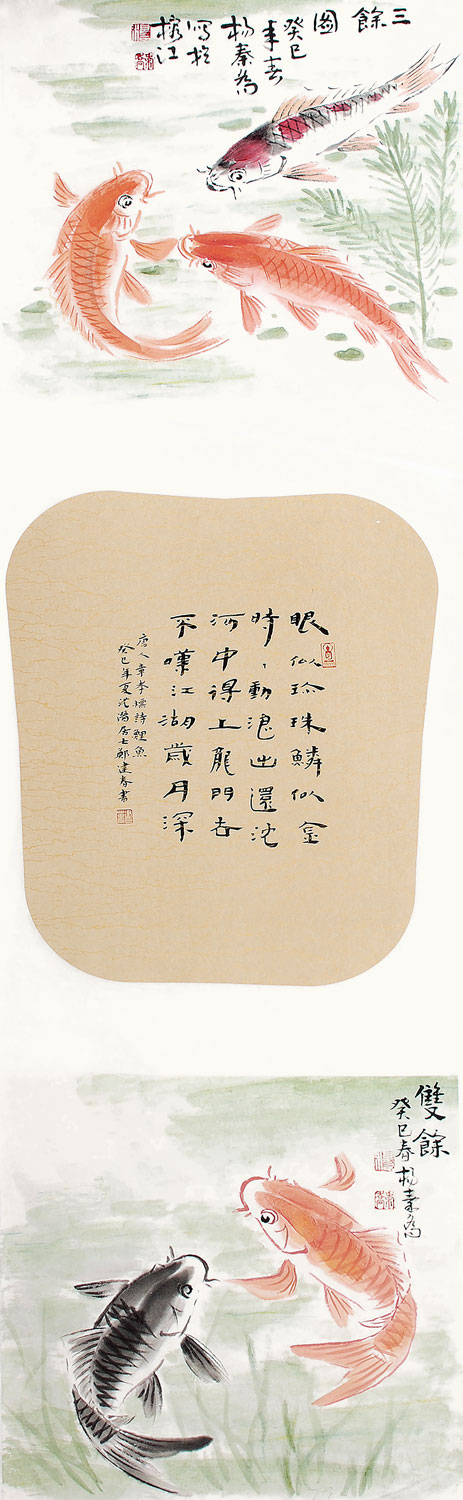 三餘圖
癸巳
年春
楊秦為
寫於
榕江
眼似珍珠鱗似金
時、動浪出還沈
河中得上龍門去
不嘆江湖歲月深
唐人章孝標詩鯉魚
癸巳年夏居士鄭建春書
雙餘
癸巳春楊秦為